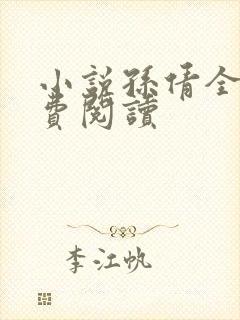 小説孫倩全
費閱讀
李江帆